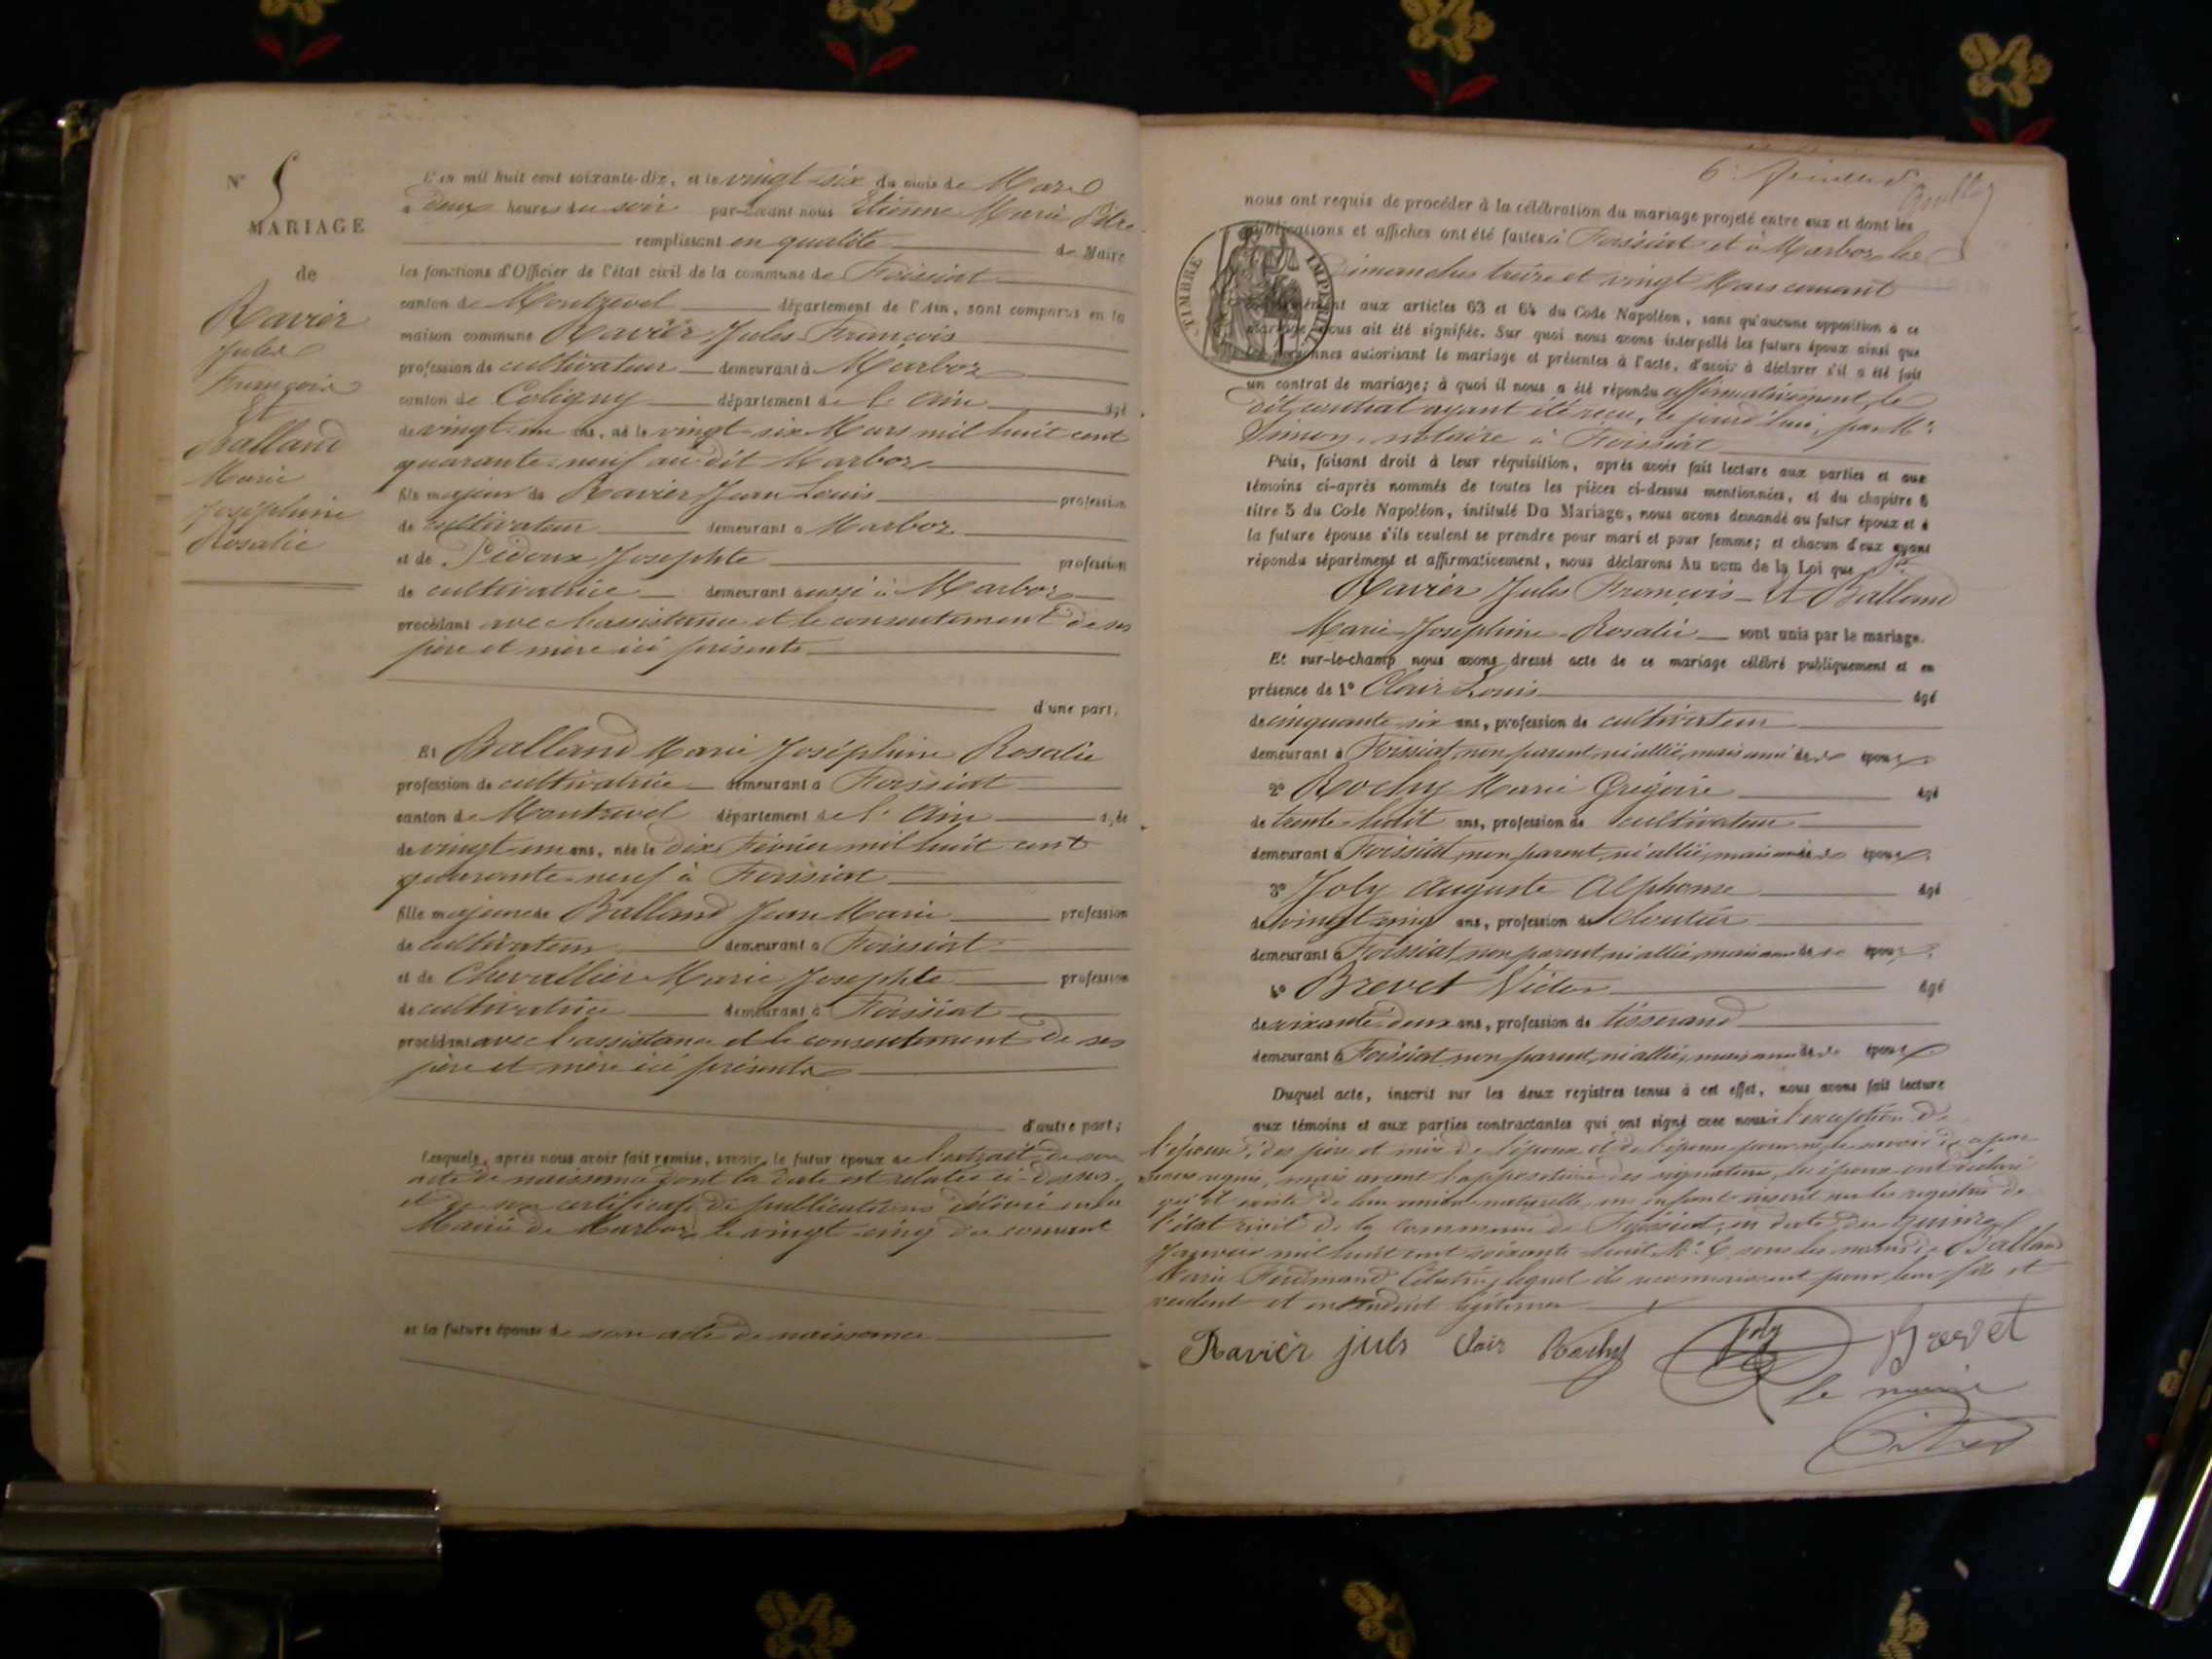 N° 5
MARIAGE
de
Ravier
Jules
François
Et
Balland
Marie
Joséphine
Rosalie
L'an mil huit cent soixante-dix, et le vingt-six du mois de Mars
à deux heures du soir par-devant nous Etienne Marie
remplissant en qualité de Maire
les fonctions d'Officier de l'état civil de la commune de Foissiat
canton de Montrevel département de l'Ain, sont comparus en la
maison commune Ravier Jules François
profession de cultivateur demeurant à Marboz
canton de Coligny département de l'Ain âgé
de vingt-un ans, né le vingt-six Mars mil huit cent
quarante-neuf au dit Marboz
fils majeur de Ravier Jean Louis profession
de cultivateur demeurant à Marboz
et de Pidoux Josephte profession
de cultivatrice demeurant aussi à Marboz
procédant avec l'assistance et le consentement de ses
père et mère ici présents
d'une part,
Et Balland Marie Joséphine Rosalie
profession de cultivatrice demeurant à Foissiat
canton de Montrevel département de l'Ain âgée
de vingt-un ans, née le dix Février mil huit cent
quarante-neuf à Foissiat
fille majeure de Balland Jean Marie profession
de cultivateur demeurant à Foissiat
et de Chevallier Marie Josephte profession
de cultivatrice demeurant à Foissiat
procédant avec l'assistance et le consentement de ses
père et mère ici présents
d'autre part;
Lesquels, après nous avoir fait remise, savoir, le futur époux de l'extrait de son
acte de naissance dont la date est relatée ci-dessus,
et de son certificat de publications délivré en la
Mairie de Marboz, le vingt-cinq du courant
et la future épouse de son acte de naissance
6e
nous ont requis de procéder à la célébration du mariage projeté entre eux et dont les
publications et affiches ont été faites à Foissiat et à Marboz les
Dimanches treize et vingt Mars courant
TIMBRE IMPÉRIAL
conformément aux articles 63 et 64 du Code Napoléon, sans qu'aucune opposition à ce
mariage nous ait été signifiée. Sur quoi nous avons interpellé les futurs époux ainsi que
les personnes autorisant le mariage et présentes à l'acte, d'avoir à déclarer s'il a été fait
un contrat de mariage; à quoi il nous a été répondu affirmativement, le
dit contrat ayant été reçu, ce jourd'hui, par Me
Simon, notaire à Foissiat
Puis, faisant droit à leur réquisition, après avoir fait lecture aux parties et aux
témoins ci-après nommés de toutes les pièces ci-dessus mentionnées, et du chapitre 6
titre 5 du Code Napoléon, intitulé Du Mariage, nous avons demandé au futur époux et à
la future épouse s'ils veulent se prendre pour mari et pour femme; et chacun d'eux ayant
répondu séparément et affirmativement, nous déclarons Au nom de la Loi que
Ravier Jules François Et Balland
Marie Joséphine Rosalie sont unis par le mariage.
Et sur-le-champ nous avons dressé acte de ce mariage célébré publiquement et en
présence de 1° Clair Louis âgé
de cinquante-six ans, profession de cultivateur
demeurant à Foissiat, non parent, ni allié, mais ami des époux
2° Rochy Marie Grégoire âgé
de trente-huit ans, profession de cultivateur
demeurant à Foissiat, non parent, ni allié, mais ami des époux
3° Joly Auguste Alphonse âgé
de vingt-cinq ans, profession de Cloutier
demeurant à Foissiat, non parent, ni allié, mais ami des époux
4° Brevet Victor âgé
de soixante-deux ans, profession de tisserand
demeurant à Foissiat, non parent, ni allié, mais ami des époux
Duquel acte, inscrit sur les deux registres tenus à cet effet, nous avons fait lecture
aux témoins et aux parties contractantes qui ont signé avec nous à l'exception de
l'épouse, des père et mère de l'époux et de l'épouse pour ne le savoir de ce par
nous requis, mais avant l'apposition des signatures, les époux ont déclaré
qu'il existe de leur union naturelle, un enfant inscrit sur les registres de
l'état civil de la commune de Foissiat, en date du quinze
Janvier mil huit cent soixante-huit N° 6 sous les noms de Balland
Marie Ferdinand Célestin, lequel ils reconnaissent pour leur fils et
veulent et entendent légitimer
Ravièr juls Clair Rochy Joly Brevet
le maire